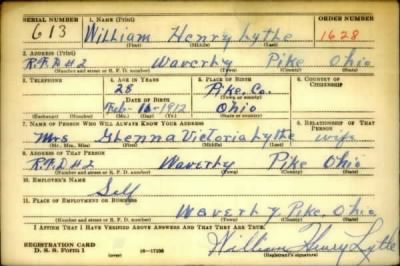 SERIAL NUMBER 1. NAME (Print) ORDER NUMBER
613 William Henry Lythe 1628
(First) (Middle) (Last)
2. ADDRESS (Print)
R.F.D #2 Waverly Pike Ohio
(Number and street or R. F. D. number) (Town) (County) (State)
3. TELEPHONE 4. AGE IN YEARS 5. PLACE OF BIRTH 6. COUNTRY OF CITIZENSHIP
28 Pike, Co.
DATE OF BIRTH (Town or county)
Feb- 1912 Ohio
(Exchange) (Number) (Mo.) (Day) (Yr.) (State or country)
7. NAME OF PERSON WHO WILL ALWAYS KNOW YOUR ADDRESS 8. RELATIONSHIP OF THAT PERSON
Mrs Glenna Victoria Lythe wife
(Mr., Mrs., Miss) (First) (Middle) (Last)
9. ADDRESS OF THAT PERSON
R.F.D #2 Waverly Pike Ohio
(Number and street or R. F. D. number) (Town) (County) (State)
10. EMPLOYER'S NAME
Self
11. PLACE OF EMPLOYMENT OR BUSINESS
Waverly Pike, Ohio
(Number and street or R. F. D. number) (Town) (County) (State)
I AFFIRM THAT I HAVE VERIFIED ABOVE ANSWERS AND THAT THEY ARE TRUE.
REGISTRATION CARD
D. S. S. Form 1 (over) William Henry Lytle
(Registrant's signature)